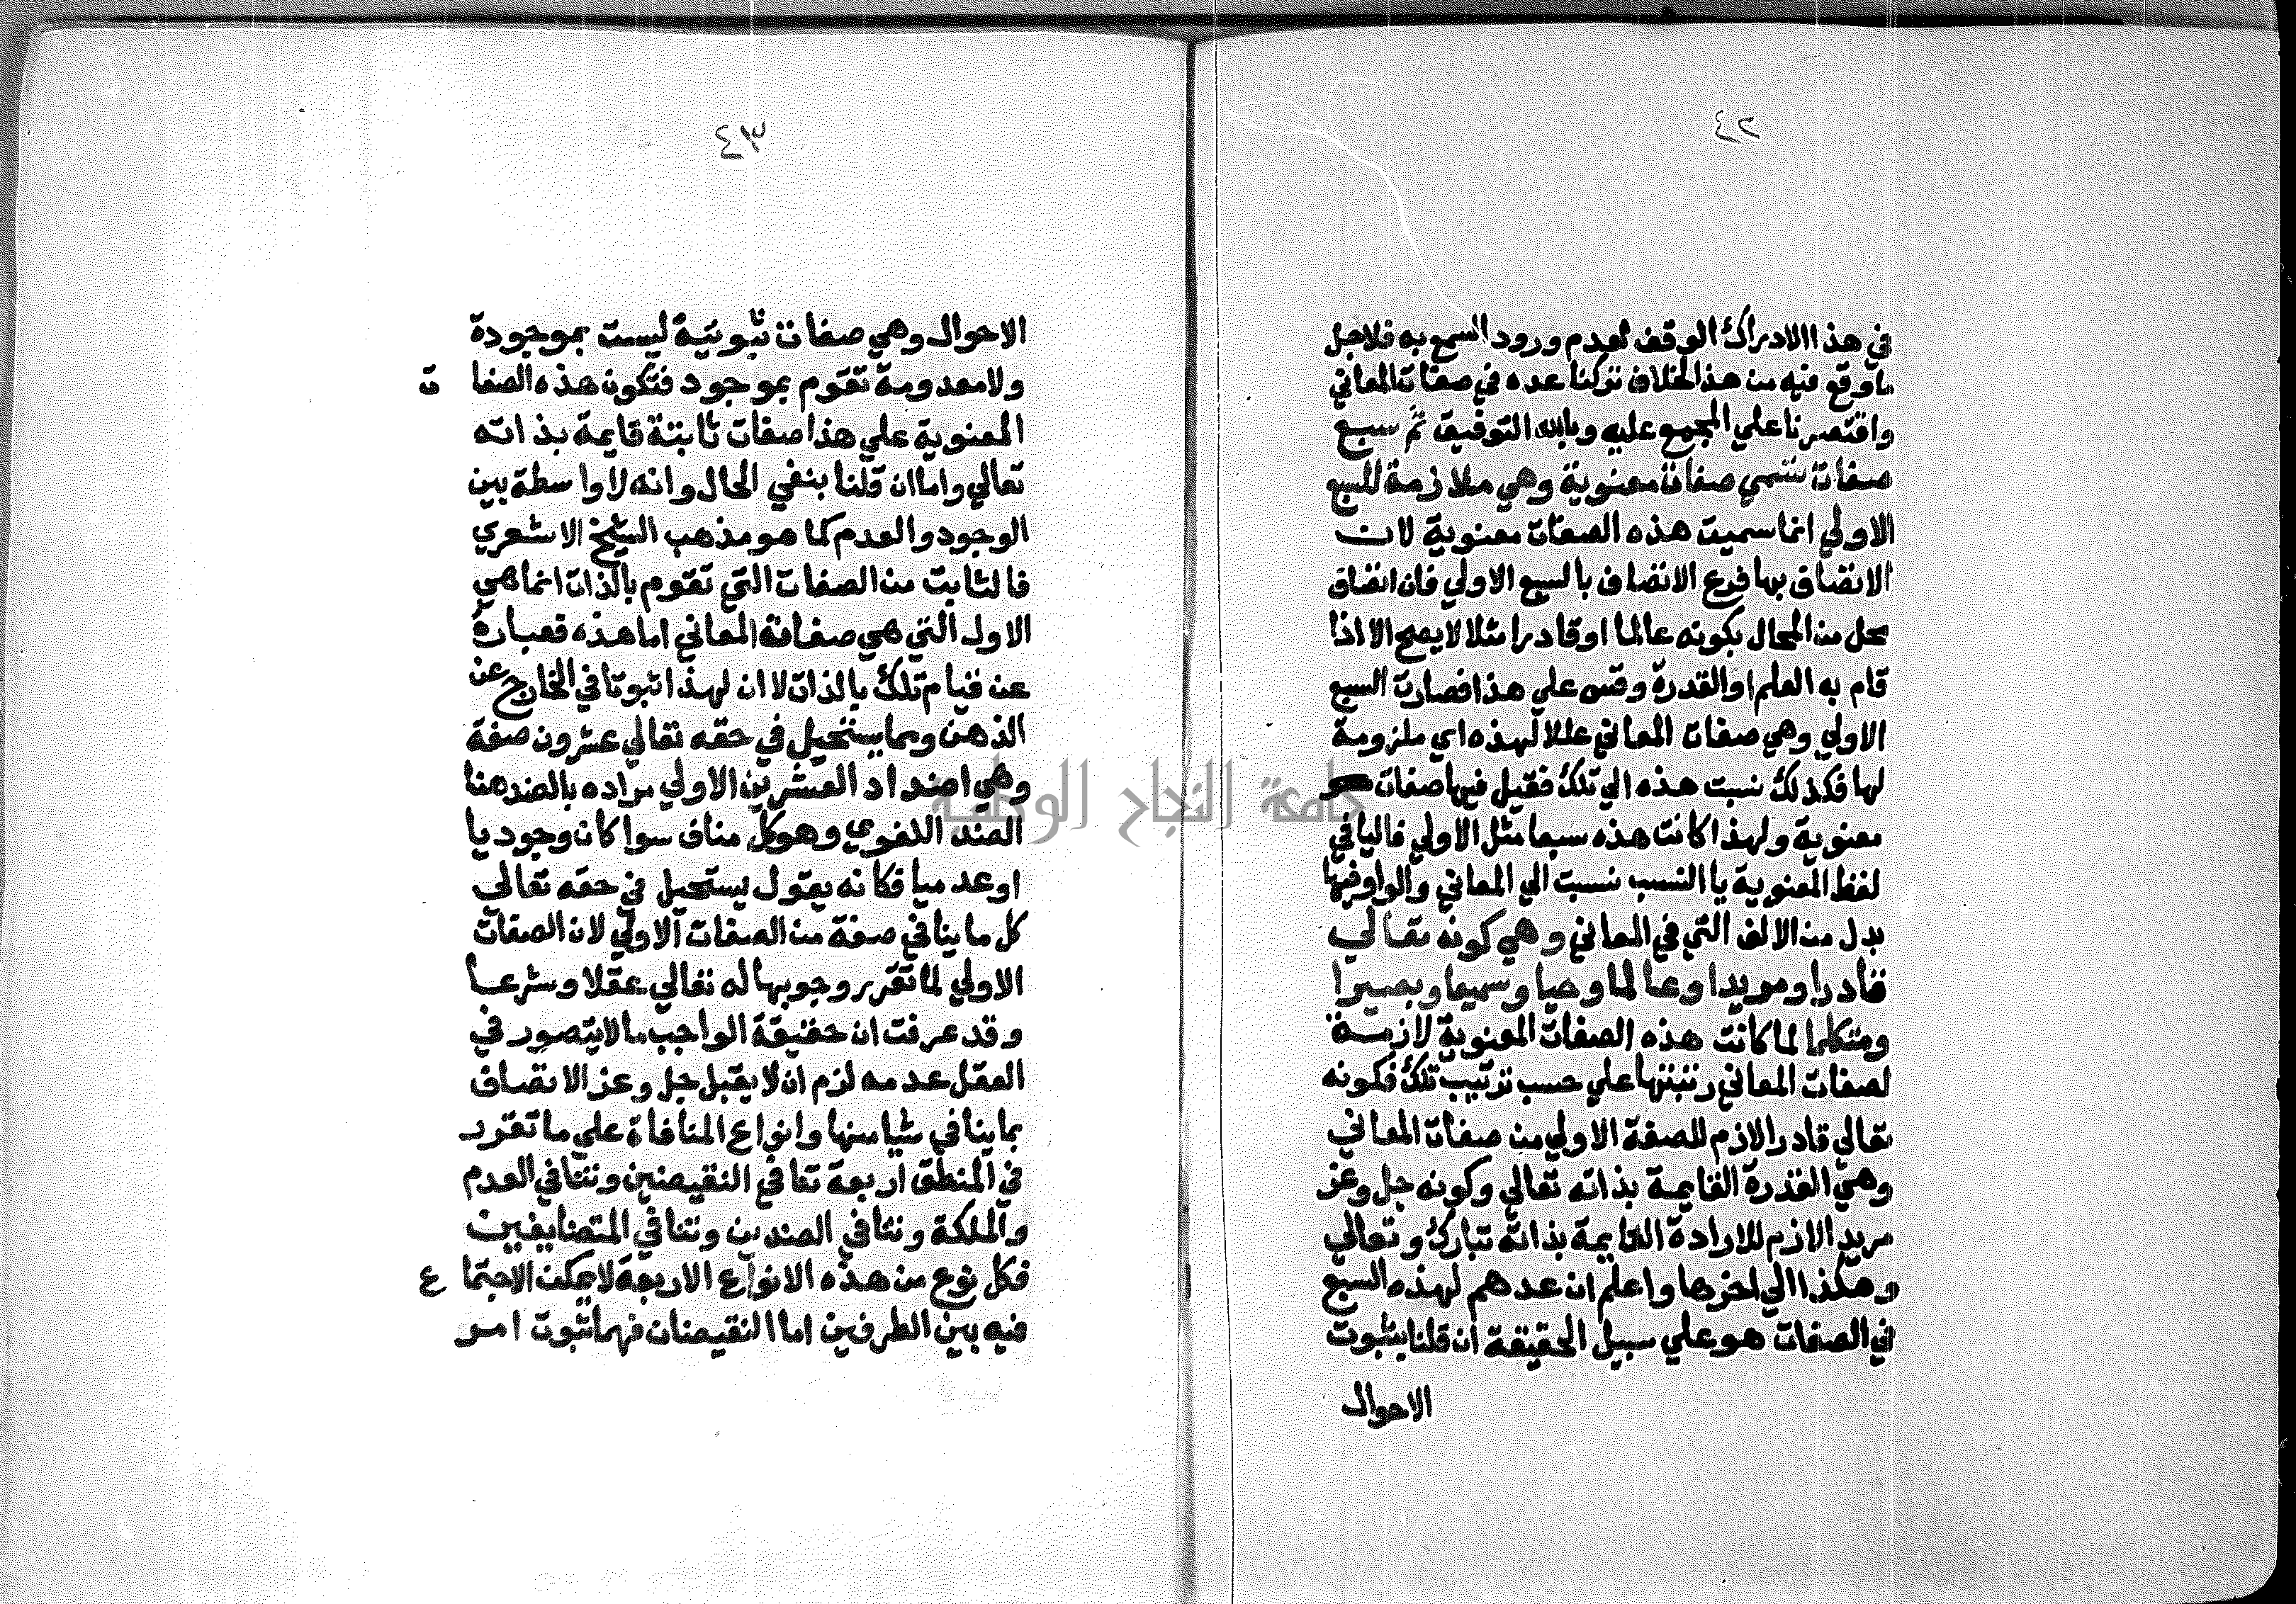 ٢٤
في هذا الادراك الوقف لعدم ورود السمع به فلاجل
ما وقع فيه من هذا الخلاف تركنا عده في صفات المعاني
واقتصرنا علي المجمع عليه وبالله التوفيق ثم سبع
صفات تسمي صفات معنوية وهي ملازمة للسبع
الاولي انما سميت هذه الصفات معنوية لان
الاتصاف بها فرع الاتصاف بالسبع الاولي فان اتصاف
محل من المحال بكونه عالما او قادرا مثلا لا يصح الا اذا
قام به العلم او القدرة وقس علي هذا فصارت السبع
الاولي وهي صفات المعاني عللا لهذه اي ملزومة
لها فكذلك نسبت هذه الي تلك فقيل فيها صفات
معنوية ولهذا كانت هذه سبعا مثل الاولي فاليا في
لفظ المعنوية يا النسب نسبت الي المعاني والواو فيها
بدل من الالف التي في المعاني وهي كونه تعالي
قادرا ومريدا وعالما وحيا وسميعا وبصيرا
ومتكلما لما كانت هذه الصفات المعنوية لازمة
لصفات المعاني رتبتها علي حسب ترتيب تلك فكونه
تعالي قادرا لازم للصفة الاولي من صفات المعاني
وهي القدرة القايمة بذاته تعالي وكونه جل وعز
مريدا لازم للارادة القايمة بذاته تبارك وتعالي
وهكذا الي اخرها واعلم ان عدهم لهذه السبع
في الصفات هو علي سبيل الحقيقة ان قلنا بثبوت
الاحوال
٤٣
الاحوال وهي صفات ثبوتية ليست بموجودة
ولا معدومة تقوم بموجود فتكون هذه الصفا ت
المعنوية علي هذا صفات ثابتة قايمة بذاته
تعالي واما ان قلنا بنفي الحال وانه لا واسطة بين
الوجود والعدم كما هو مذهب الشيخ الاشعري
فالثابت من الصفات التي تقوم بالذات انما هي
الاول التي هي صفات المعاني اما هذه فعبارة
عن قيام تلك بالذات لا ان لهذا ثبوتا في الخارج عن
الذهن ومما يستحيل في حقه تعالي عشرون صفة
وهي اضداد العشرين الاولي مراده بالضد هنا
الضد اللغوي وهو كل مناف سوا كان وجوديا
او عدميا فكانه يقول يستحيل في حقه تعالي
كل ما ينافي صفة من الصفات الاولي لان الصفات
الاولي لما تقرر وجوبها له تعالي عقلا وشرعا
وقد عرفت ان حقيقة الواجب ما لا يتصور في
العقل عدمه لزم ان لا يقبل جل وعز الاتصاف
بما ينافي شيا منها وانواع المنافاة علي ما تقرر
في المنطق اربعة تنافي النقيضين وتنافي العدم
والملكة وتنافي الضدين وتنافي المتضايفين
فكل نوع من هذه الانواع الاربعة لا يمكن الاجتما ع
فيه بين الطرفين اما النقيضان فهما ثبوت امر
جامعة النجاح الوطنية